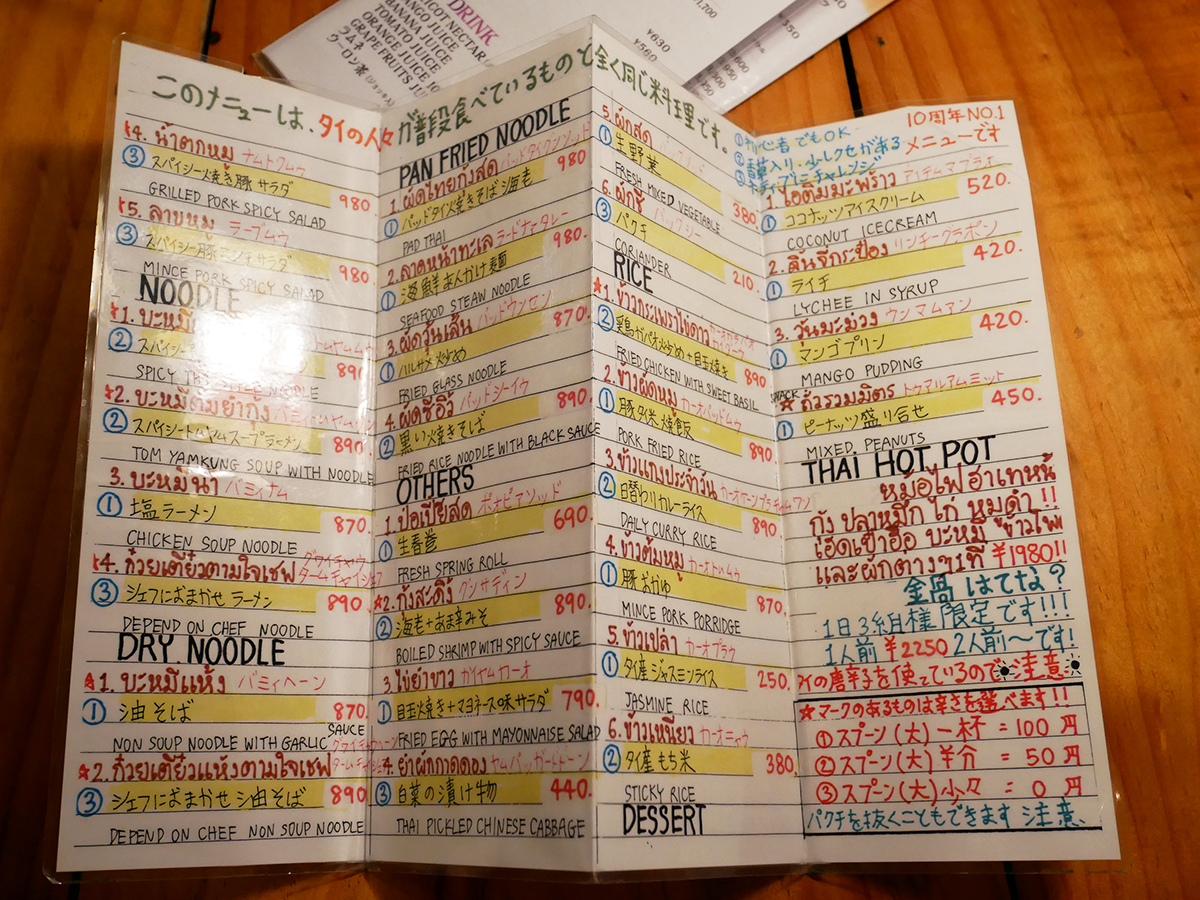 DRINK
¥630
¥560
1,700
MANGO JUICE
BANANA JUICE
TOMATO JUICE
ORANGE JUICE
GRAPE FRUITS JU
ラムネ
ウーロン茶
このメニューは、タイの人々が普段食べているものと全く同じ料理です。
★4. น้ำตกหมู ナムトクムウ
③ スパイシー焼き豚サラダ 980
GRILLED PORK SPICY SALAD
★5. ลาบหมู ラープムウ
③ スパイシー豚ミンチサラダ 980
MINCE PORK SPICY SALAD
NOODLE
★1. บะหมี่
② スパイシー 890
SPICY NOODLE
★2. บะหมี่ต้มยำกุ้ง
② スパイシートムヤムスープラーメン 890
TOM YAMKUNG SOUP WITH NOODLE
3. บะหมี่น้ำ バミィナム
① 塩ラーメン 870.
CHICKEN SOUP NOODLE
★4. ก๋วยเตี๋ยวตามใจเชฟ
③ シェフにおまかせ ラーメン 890.
DEPEND ON CHEF NOODLE
DRY NOODLE
★1. บะหมี่แห้ง バミィヘーン
① 油そば 870.
NON SOUP NOODLE WITH GARLIC SAUCE
★2. ก๋วยเตี๋ยวแห้งตามใจเชฟ
③ シェフにおまかせ 油そば 890
DEPEND ON CHEF NON SOUP NOODLE
PAN FRIED NOODLE
1. ผัดไทยกุ้งสด パッドタイクンソッド
① パッドタイ焼きそば海老 980
PAD THAI
2. ลาดหน้าทะเล ラードナァタレー
① 海鮮あんかけ麺 980.
SEAFOOD STEAW NOODLE
3. ผัดวุ้นเส้น パッドウンセン
① ハルサメ炒め 870.
FRIED GLASS NOODLE
4. ผัดซีอิ๊ว パッドシーイウ
② 黒い焼きそば 890.
FRIED RICE NOODLE WITH BLACK SAUCE
OTHERS
1. ปอเปี๊ยสด ポオピアソッド
① 生春巻 690.
FRESH SPRING ROLL
★2. กุ้งสะดิ้ง グンサディン
② 海老+あま辛みそ 890.
BOILED SHRIMP WITH SPICY SAUCE
3. ไข่ยำขาว カイヤムカーオ
① 目玉焼き+マヨネース味サラダ 790.
FRIED EGG WITH MAYONNAISE SALAD
4. ยำผักกาดดอง ヤムパッガートドーン
③ 白菜の漬け物 440.
THAI PICKLED CHINESE CABBAGE
5. ผักสด パックソッド
① 生野菜 380.
FRESH MIXED VEGETABLE
6. ผักชี パックシー
③ パクチ 210.
CORIANDER
RICE
★1. ข้าวกระเพราไข่ดาว
② 鶏ガパオ炒め+目玉焼き 890
FRIED CHICKEN WITH SWEET BASIL
2. ข้าวผัดหมู カーオパッドムウ
① 豚タイ米焼飯 890.
PORK FRIED RICE
3. ข้าวแกงประจำวัน
② 日替わりカレーライス 890.
DAILY CURRY RICE
4. ข้าวต้มหมู カーオトムムウ
① 豚おかゆ 870.
MINCE PORK PORRIDGE
5. ข้าวเปล่า カーオプラウ
① タイ産ジャスミンライス 250.
JASMINE RICE
6. ข้าวเหนียว カーオニャウ
② タイ産もち米 380.
STICKY RICE
DESSERT
10周年NO.1
メニューです
①初心者でもOK
②香草入り・少しクセが来る
1. ไอติมมะพร้าว アイティムマプラォ
① ココナッツアイスクリーム 520.
COCONUT ICECREAM
2. ลิ้นจี่กระป๋อง リンチーグラポン
① ライチ 420.
LYCHEE IN SYRUP
3. วุ้นมะม่วง ウンマムアン
① マンゴプリン 420.
MANGO PUDDING
★ ถั่วรวมมิตร トゥアルアムミット
① ピーナッツ盛り合せ 450.
MIXED, PEANUTS
THAI HOT POT
หม้อไฟฮาเทหน้
กุ้ง ปลาหมึก ไก่ หมูดำ!!
เฮดเข้าฮื่อ บะหมี่ ข้าวโพ
และผักต่างๆ1ที่ ¥1980!!
金鍋 はてな?
1日3組様限定です!!!
1人前 ¥2250 2人前〜です!
タイの唐辛子を使っているので注意
★マークのあるものは辛さを選べます!!
①スプーン(大)一杯 = 100円
②スプーン(大)半分 = 50円
③スプーン(大)少々 = 0円
パクチを抜くこともできます 注意、